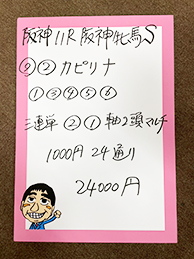 阪神11R 阪神牝馬S
◎② カピリナ
①③④⑤⑥
三連単 ②① 軸2頭マルチ
1000円 24通り
24000円